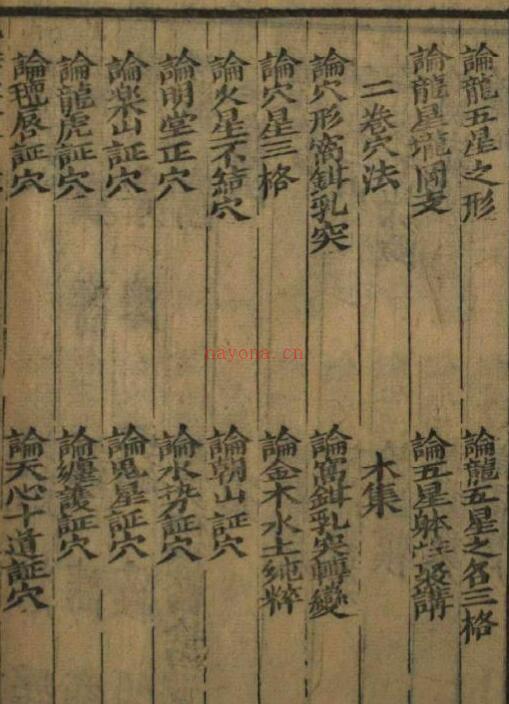 論龍五星之形　論龍五星之名三格
論龍星壠岡支　論五星躰性講
二卷穴法　木集
論穴形窩鉗乳突　論窩鉗乳突轉變
論穴星三格　論金木水土純粹
論火星不結穴　論朝山証穴
論明堂正穴　論水势証穴
論楽山証穴　論鬼星証穴
論龍虎証穴　論纏護証穴
論氊唇証穴　論天心十道証穴
nayona.cn